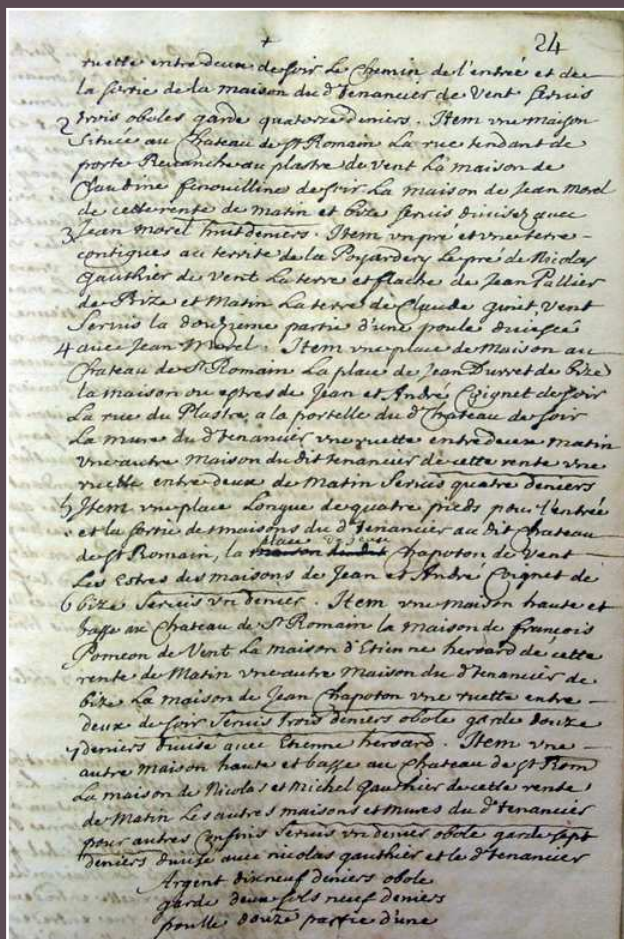 + 24
ruette entre deux de soir Le Chemin de l'entrée et de
la sortie de la maison du d' tenancier de Vent servis
trois oboles garde quatorze deniers. Item une maison
2 située au Chateau de St Romain La rue tendant de
porte Revanche au plastre de vent La maison de
Claudine fenouilline de soir La maison de Jean Morel
de cette rente de matin et bize servis divisez avec
Jean morel huit deniers. Item un pré et une terre
3 contigues au territe de la Poyardery Le pré de Nicolas
Gauthier de vent La terre et flache de Jean Pallier
de Bize et Matin La terre de Claude giniet Vent
Servis la douzieme partie d'une poule divisée
4 avec Jean Morel. Item une place de Maison au
Chateau de St Romain La place de Jean Durret de bize
la maison ou estres de Jean et André Coignet de soir
La rue du Plastre a la portelle du d' Chateau de soir
La mure du d' tenancier une ruette entre deux matin
une autre maison du dit tenancier de cette rente une
ruette entre deux de Matin Servis quatre deniers
5 Item une place Longue de quatre pieds pour l'entrée
et la sortie des maisons du d' tenancier au dit Chateau
place
de St Romain, la maison Chapoton de Vent
Les Estres des maisons de Jean et André Coignet de
6 bize Servis un denier. Item une maison haute et
basse au Chateau de St Romain la maison de françois
Pomeon de Vent La maison d'Etienne hersard de cette
rente de Matin une autre Maison du d' tenancier de
bize La maison de Jean Chapoton une ruette entre
deux de soir Servis trois deniers obole garde douze
deniers divisé avec Etienne hersard. Item une
7 autre maison haute et basse au Chateau de St Rom
La maison de Nicolas et Michel Gauthier de cette rente
de Matin Les autres maisons et mures du d' tenancier
pour autres Confins Servis un denier obole garde sept
deniers divisé avec nicolas gauthier et le d' tenancier
Argent dixneuf deniers obole
garde deux sols neuf deniers
poulle douze partie d'une